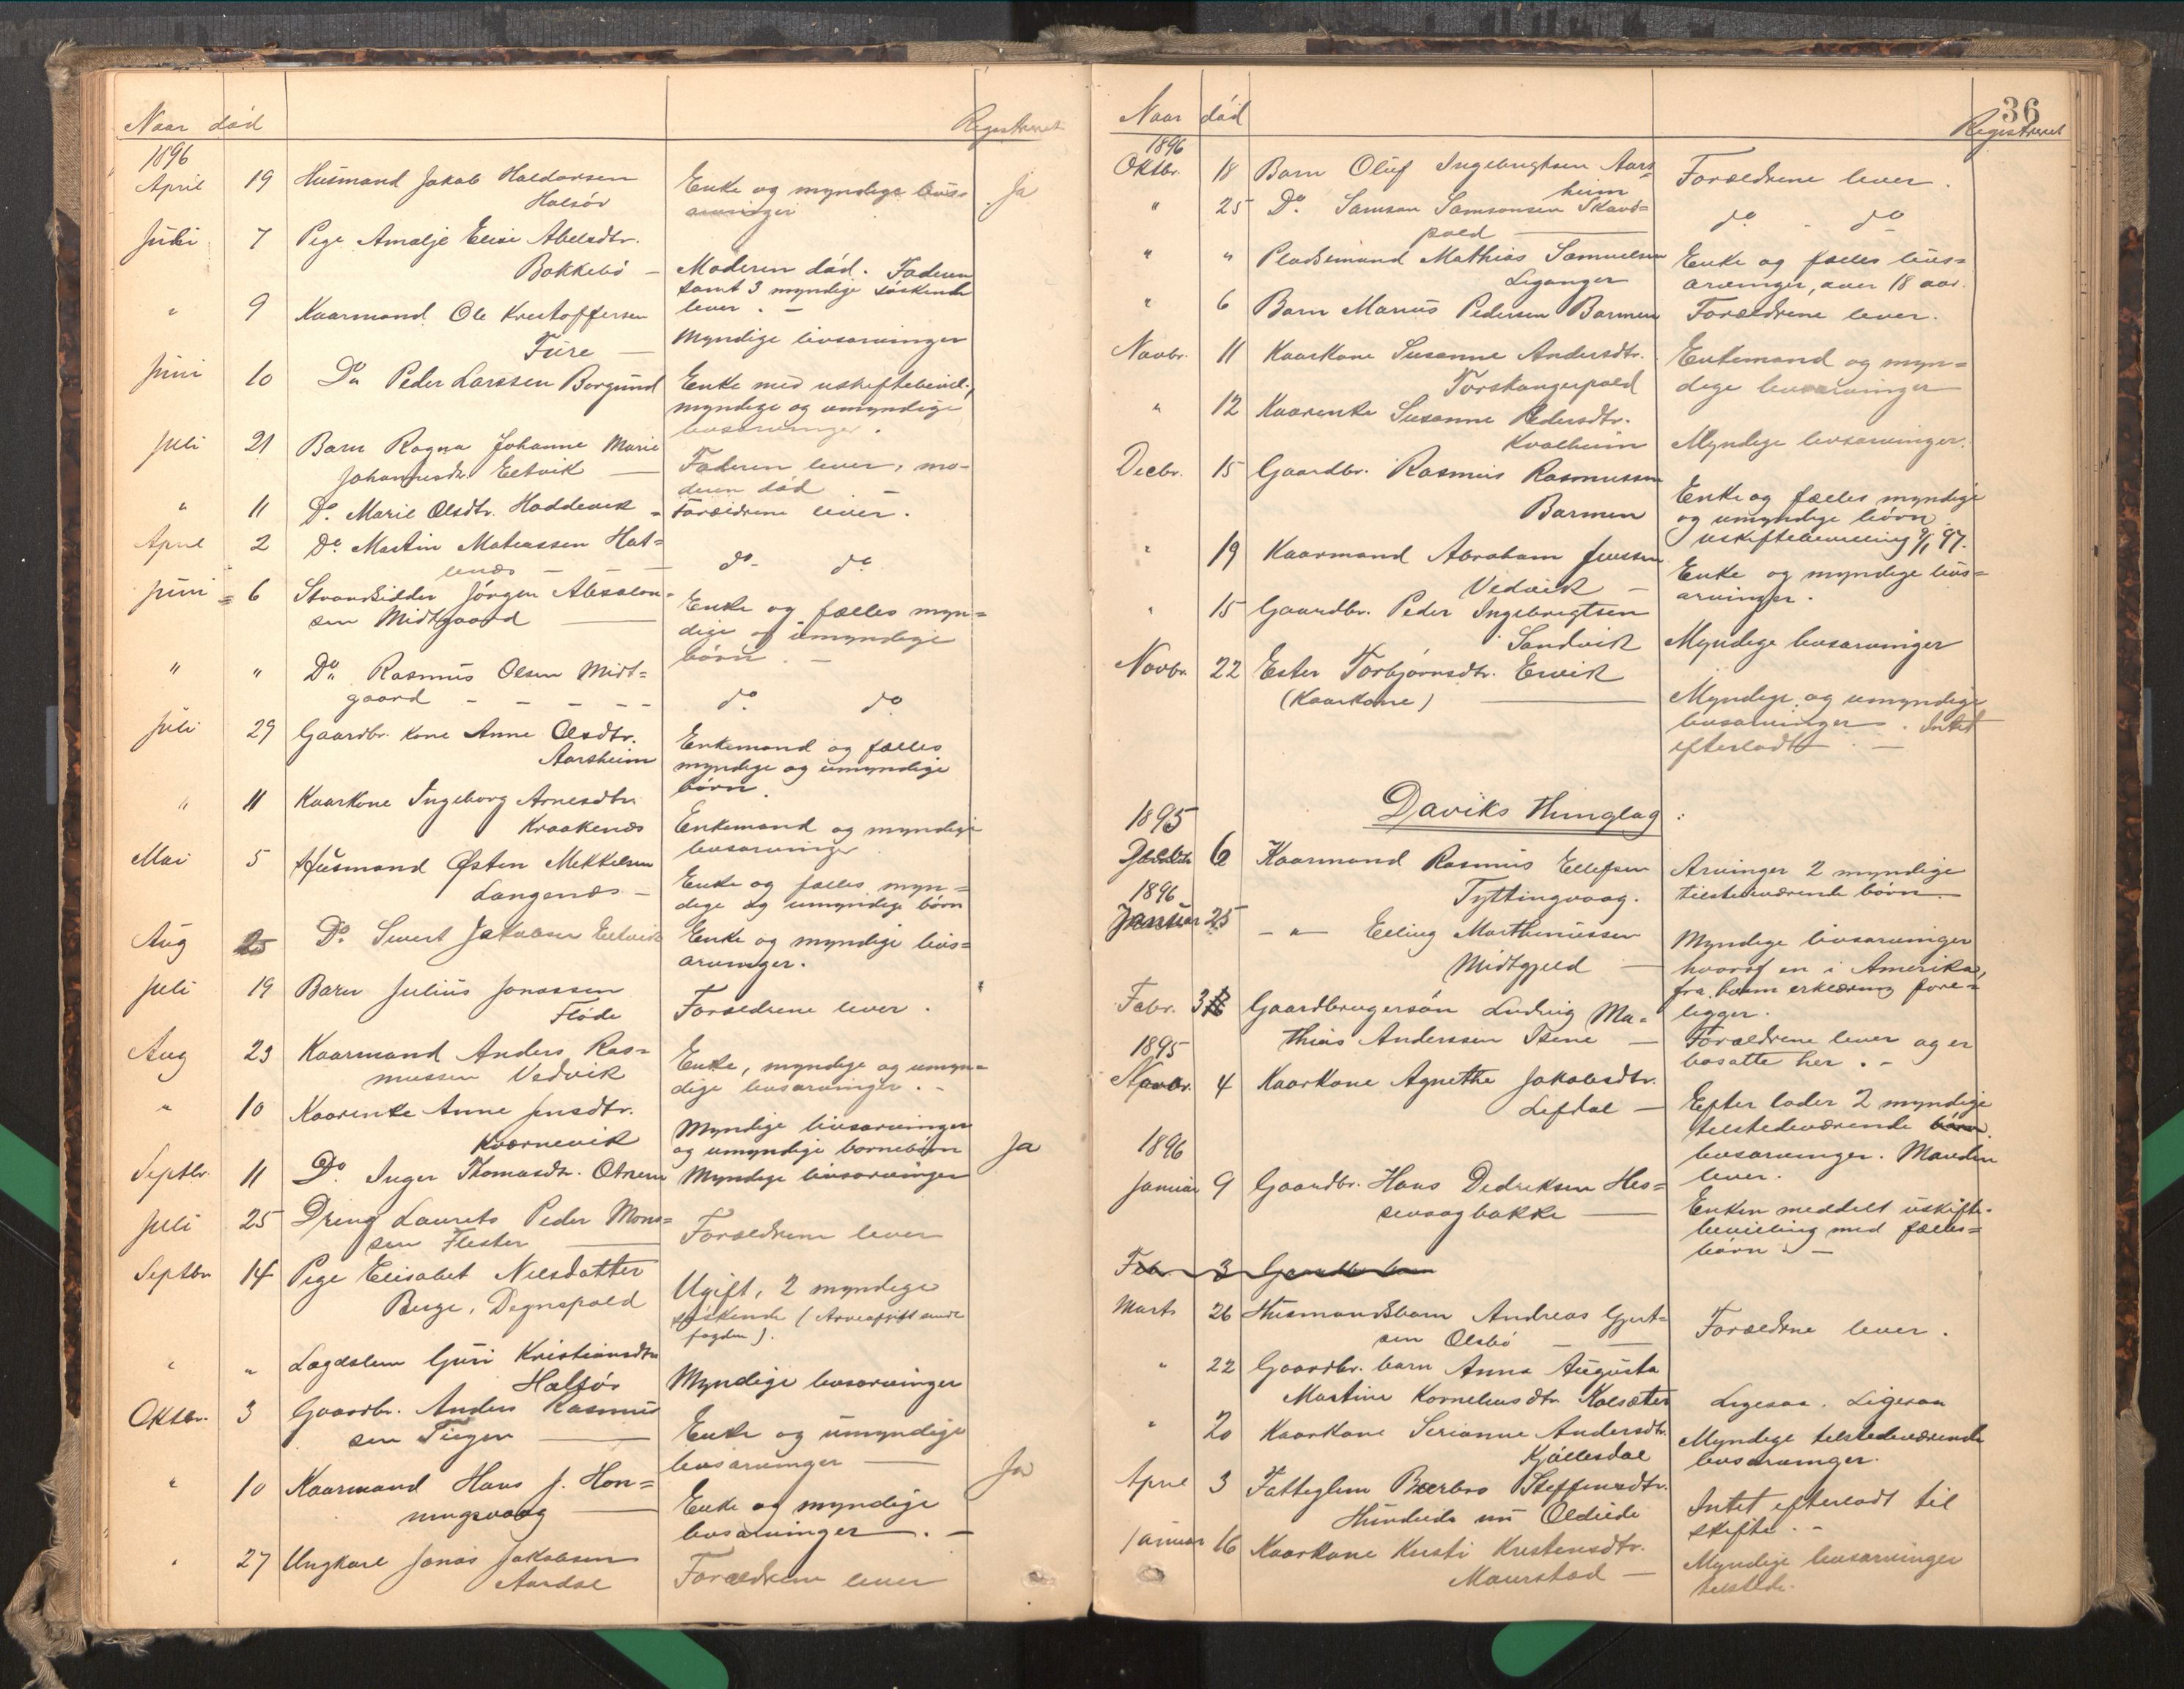 Naar død
Registreret
1896
April 19 Husmand Jakob Haldorsen
Halsør
Enke og myndige livs-
arvinger
Ja
Juli 7 Pige Amalje Elise Abelsdtr.
Bakkebø —
Moderen død. Faderen
samt 3 myndige søskende
lever. —
" 9 Kaarmand Ole Kristoffersen
Fure —
Myndige livsarvinger
Juni 10 Do Peder Larssen Borgund
Enke med uskiftebevil.,
myndige og umyndige
livsarvinger.
Juli 21 Barn Ragna Johanne Marie
Johannesdtr. Eltvik —
Faderen lever, mo-
deren død
" 11 Do. Marie Olsdtr. Hoddevik -
Forældrene lever.
April 2 Do. Martin Mateassen Hat=
lenæs —
do- do
Juni = 6 Strandsidder Jørgen Absalon-
sen Midtgaard —
Enke og fælles myn=
dige og umyndige
børn. —
" " Do Rasmus Olsen Midt=
gaard - - - - -
do do
Juli 29 Gaardbr. kone Anne Olsdtr.
Aarsheim
Enkemand og fælles
myndige og umyndige
børn.
" 11 Kaarkone Ingeborg Arnesdtr.
Kraakenæs
Enkemand og myndige
livsarvinger
Mai 5 Husmand Østen Mekkelsen
Langenæs —
Enke og fælles myn=
dige og umyndige børn
Aug 25 Do. Sivert Jakobsen Eltvik
Enke og myndige livs-
arvinger.
Juli 19 Barn Julius Jonassen
Flöde
Forældrene lever.
Aug 23 Kaarmand Anders Ras=
mussen Vedvik
Enke, myndige og umyn=
dige livsarvinger. -
" 10 Kaarenke Anne Jensdtr.
Kvernevik
Myndige livsarvinger
og umyndige barnebørn
Ja
Septbr. 11 Do. Inger Thomasdtr. Otnem
Myndige livsarvinger
Juli 25 Dreng Laurits Peder Mons=
sen Flister —
Forældrene lever
Septbr 14 Pige Elisabet Nilsdatter
Berge, Degnepold
Ugift, 2 myndige
søskende (Arveafgift sendt
fogden).
" " Lægdslem Guri Kristiansdtr
Halsør
Myndige livsarvinger
Oktbr. 3 Gaardbr. Anders Rasmus
sen Tiegen —
Enke og umyndige
livsarvinger —
" 10 Kaarmand Hans J. Hon=
ningsvaag —
Enke og myndige
livsarvinger. —
Ja
" 27 Ungkarl Jonas Jakobsen
Aardal
Forældrene lever
36
Naar død
Registreret
1896
Oktbr. 18 Barn Oluf Ingebrigtsen Aars=
heim
Forældrene lever.
" 25 Do. Samson Samsonsen Skavd=
pold —
do - do
" " Pladsemand Mathias Samuelsen
Leganger
Enke og fælles livs=
arvinger, over 18 aar.
" 6 Barn Marius Pedersen Barmen
Forældrene lever.
Novbr. 11 Kaarkone Susanne Andersdtr.
Torskangerpold
Enkemand og myn=
dige livsarvinger
" 12 Kaarenke Susanne Pedersdtr.
Kvalheim
Myndige livsarvinger.
Decbr. 15 Gaardbr. Rasmus Rasmussen
Barmen
Enke og fælles myndige
og umyndige børn.
uskiftebevilling 9/1 97.
" 19 Kaarmand Abraham Jenssen
Vedvik —
Enke og myndige livs=
arvinger.
" 15 Gaardbr. Peder Ingebrigtsen
Sandvik
Myndige livsarvinger
Novbr. 22 Ester Torbjørnsdtr. Ervik
(Kaarkone) —
Myndige og umyndige
livsarvinger. Intet
efterladt. —
Daviks Thinglag:
1895
Decbr 6 Kaarmand Rasmus Ellefsen
Tyttingvaag.
Arvinger 2 myndige
tilstedeværende børn.
1896
Januar 25 - " - Elling Marthinussen
Midtgjeld —
Myndige livsarvinger
hvoraf en i Amerika,
fra hvem erklæring fore=
ligger.
Febr. 3 Gaardbrugersøn Ludvig Ma=
thias Anderssen Isene —
Forældrene lever og er
bosatte her. -
1895
Novbr. 4 Kaarkone Agnethe Jakobsdtr.
Lefdal —
Efter lader 2 myndige
tilstedeværende børn.
livsarvinger. Manden
lever.
1896
Januar 9 Gaardbr. Hans Dedriksen Hes=
sevaagbakke —
Enken meddelt uskifte-
bevilling med fælles=
børn. —
Feb. 3 Gaardbr.
Marts 26 Husmandsbarn Andreas Gjert=
sen Olsbø — —
Forældrene lever.
" 22 Gaardbr. barn Anna Augusta
Martine Korneliusdtr Kolsæter
Ligesaa. Ligesaa
" 20 Kaarkone Serianne Andersdtr.
Kjöllesdal
Myndige tilstedeværende
livsarvinger.
April 3 Fatteglem Barbro Steffensdtr.
Hundeide nu Oldeide
Intet efterladt til
skifte. -
Januar 16 Kaarkone Kristi Kristensdtr.
Maurstad —
Myndige livsarvinger
tilstede.